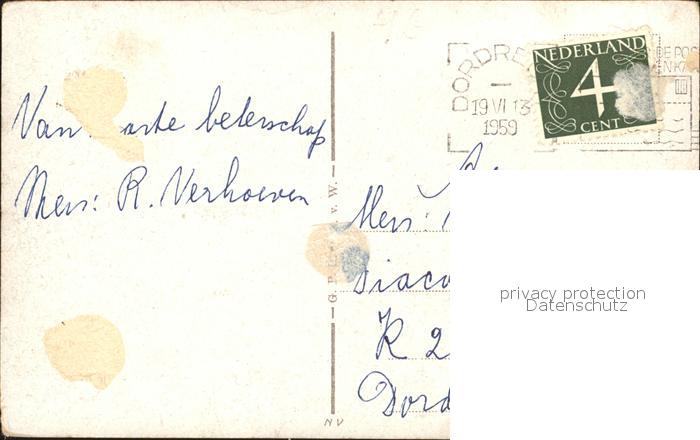 Van arte beterschap
Mevr: R. Verhoeven
DORDRE
19 VI 13
1959
NEDERLAND
4
CENT
DE POS
Mevr:
Diaco
K 2
Dord
G. P.
v. W.
NV
privacy protection
Datenschutz